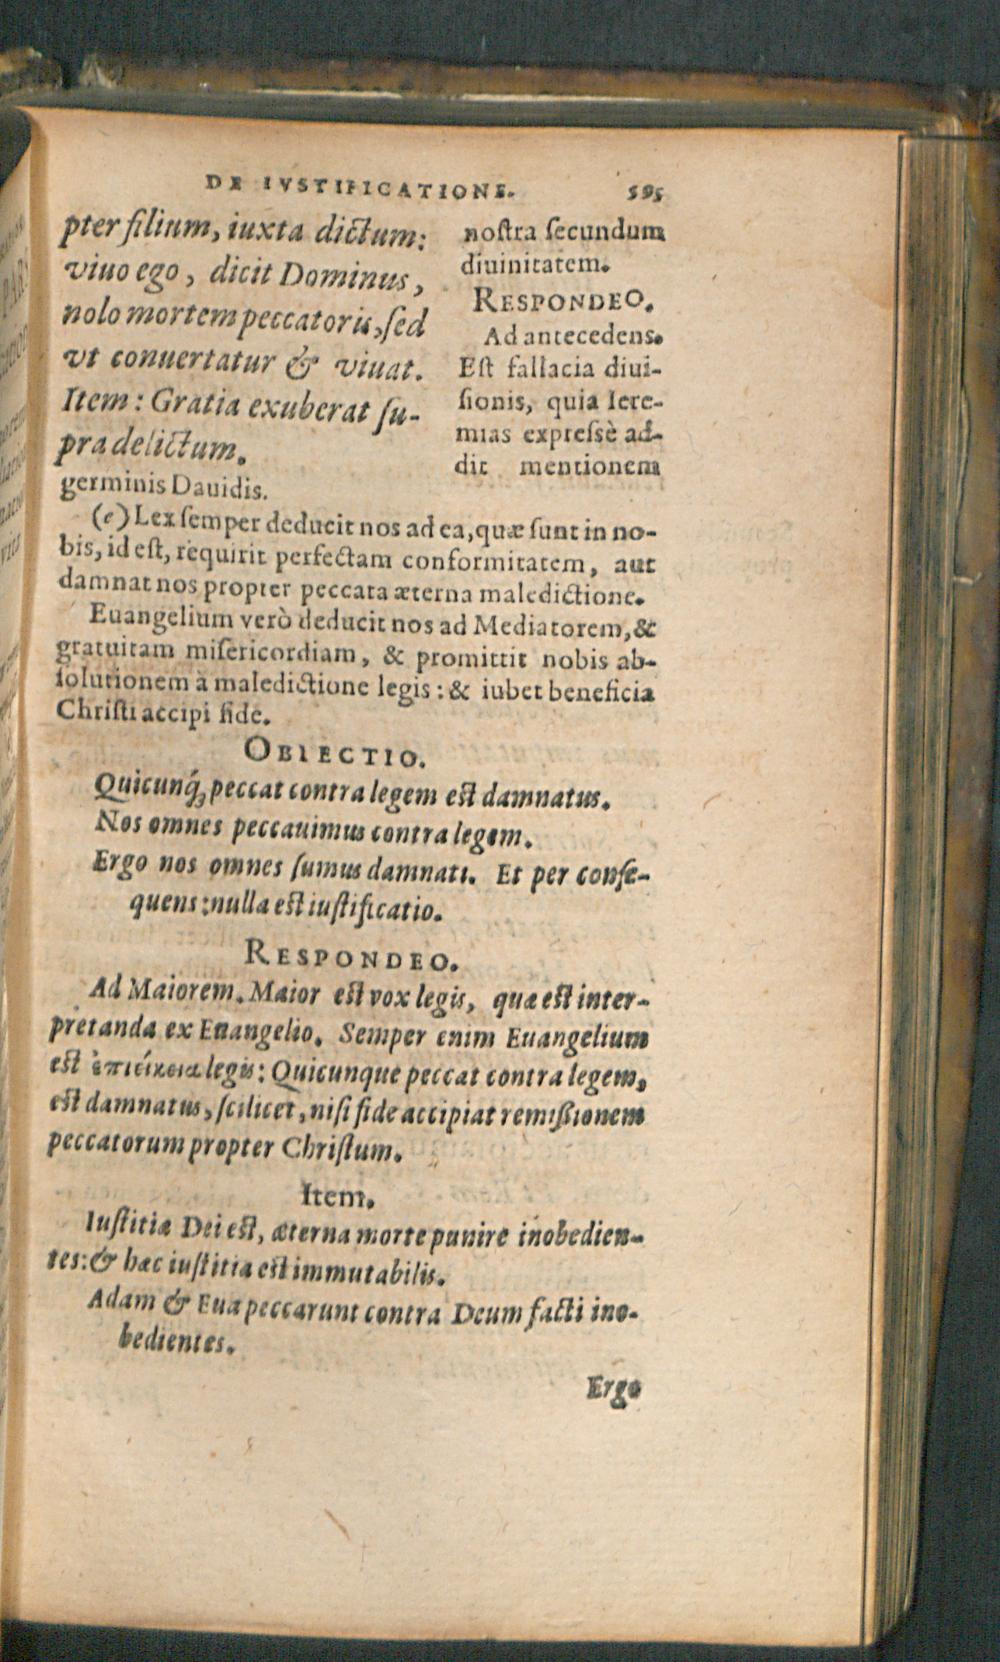 DE IVSTIFICATIONE. 595
pter filium, iuxta dictum:
viuo ego, dicit Dominus,
nolo mortem peccatoris, sed
vt conuertatur & viuat.
Item: Gratia exuberat su-
pra delictum.
nostra secundum
diuinitatem.
RESPONDEO.
Ad antecedens.
Est fallacia diui-
sionis, quia Iere-
mias expressè ad-
dit mentionem
germinis Dauidis.
(e) Lex semper deducit nos ad ea, quæ sunt in no-
bis, id est, requirit perfectam conformitatem, aut
damnat nos propter peccata æterna maledictione.
Euangelium verò deducit nos ad Mediatorem, &
gratuitam misericordiam, & promittit nobis ab-
solutionem à maledictione legis: & iubet beneficia
Christi accipi fide.
OBIECTIO.
Quicunq́; peccat contra legem est damnatus.
Nos omnes peccauimus contra legem.
Ergo nos omnes sumus damnati. Et per conse-
quens: nulla est iustificatio.
RESPONDEO.
Ad Maiorem. Maior est vox legis, quæ est inter-
pretanda ex Euangelio. Semper enim Euangelium
est ἐπιείκεια legis: Quicunque peccat contra legem,
est damnatus, scilicet, nisi fide accipiat remißionem
peccatorum propter Christum.
Item.
Iustitiæ Dei est, æterna morte punire inobedien-
tes: & hæc iustitia est immutabilis.
Adam & Eua peccarunt contra Deum facti ino-
bedientes.
Ergo